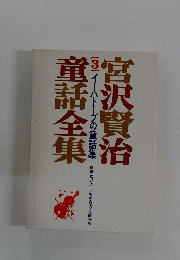 宮沢賢治
童話全集
3
イーハトーブの童話集